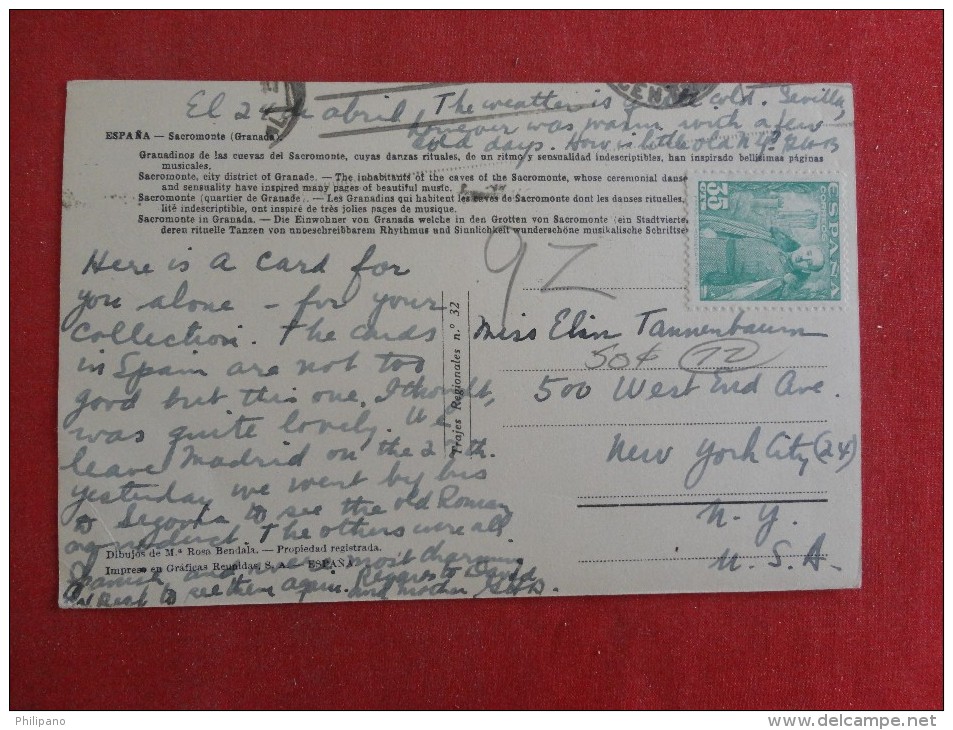 El 24 de abril The weather is quite cold. Sevilla,
however was warm with a few
cold days. How is little old N.Y.?
ESPAÑA — Sacromonte (Granada).
Granadinos de las cuevas del Sacromonte, cuyas danzas rituales, de un ritmo y sensualidad indescriptibles, han inspirado bellísimas páginas
musicales.
Sacromonte, city district of Granade. — The inhabitants of the caves of the Sacromonte, whose ceremonial danse
and sensuality have inspired many pages of beautiful music.
Sacromonte (quartier de Granade). — Les Granadins qui habitent les caves de Sacromonte dont les danses rituelles,
lité indescriptible, ont inspiré de très jolies pages de musique.
Sacromonte in Granada. — Die Einwohner von Granada welche in den Grotten von Sacromonte (ein Stadtvierte,
deren rituelle Tanzen von unbeschreibbarem Rhythmus und Sinnlichkeit wunderschöne musikalische Schriftse
35
CTS
CORREOS
ESPAÑA
92
Here is a card for
you alone — for your
collection. The cards
in Spain are not too
good but this one, I thought,
was quite lovely. We
leave Madrid on the 27th.
Yesterday we went by bus
to Segovia to see the old Roman
aqueduct. The others were all
Spanish and were most charming
to see them again. Regards to David
and mother
Trajes Regionales n.º 32
Miss Elin Tannenbaum
50¢ 12
500 West End Ave.
New York City (24)
N. Y.
U. S. A.
Dibujos de M.ª Rosa Bendala. — Propiedad registrada.
Impreso en Gráficas Reunidas, S. A. — ESPAÑA
Philipano
www.delcampe.net